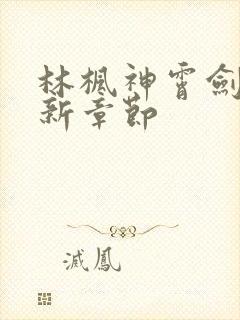 林楓神霄劍
新章節
滅鳳